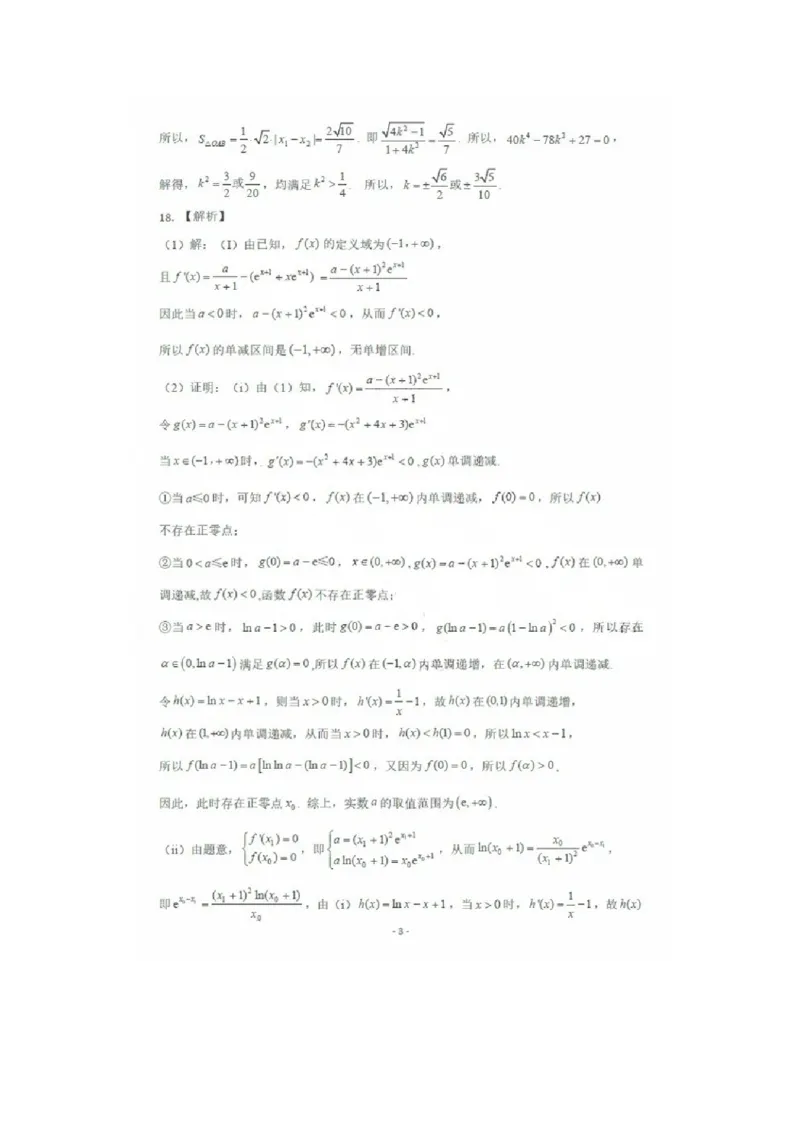 所以，S_{△OAB} = \frac{1}{2}·√2·|x₁−x₂| = \frac{2√10}{7}．即 \frac{\sqrt{4k²−1}}{1+4k²} = \frac{√5}{7}．所以，40k⁴−78k²+27=0，
解得，k² = \frac{3}{2} 或 \frac{9}{20}，均满足 k² > \frac{1}{4}．所以，k = ±\frac{√6}{2} 或 ±\frac{3√5}{10}．
18. 【解析】
（1）解：（I）由已知，f(x) 的定义域为(−1,+∞)，
且 f'(x) = \frac{a}{x+1} − (e^{x+1} + xe^{x+1}) = \frac{a−(x+1)²e^{x+1}}{x+1}
因此当 a<0 时，a−(x+1)²e^{x+1}<0，从而 f'(x)<0，
所以 f(x) 的单减区间是(−1,+∞)，无单增区间.
（2）证明：（i）由（1）知，f'(x) = \frac{a−(x+1)²e^{x+1}}{x+1}，
令 g(x)=a−(x+1)²e^{x+1}，g'(x)=−(x²+4x+3)e^{x+1}
当 x∈(−1,+∞)时，g'(x)=−(x²+4x+3)e^{x+1}<0，g(x) 单调递减.
①当 a≤0 时，可知 f'(x)<0．f(x) 在 (−1,+∞) 内单调递减，f(0)=0，所以 f(x)
不存在正零点；
②当 0<a≤e 时，g(0)=a−e≤0，x∈(0,+∞)，g(x)=a−(x+1)²e^{x+1}<0，f(x) 在 (0,+∞) 单
调递减,故 f(x)<0,函数 f(x) 不存在正零点；
③当 a>e 时，ln a−1>0，此时 g(0)=a−e>0，g(ln a−1)=a(1−ln a)²<0，所以存在
α∈(0,ln a−1) 满足 g(α)=0,所以 f(x) 在 (−1,α) 内单调递增，在 (α,+∞) 内单调递减.
令 h(x)=ln x−x+1，则当 x>0 时，h'(x)=\frac{1}{x}−1，故 h(x) 在 (0,1) 内单调递增，
h(x) 在 (1,+∞) 内单调递减，从而当 x>0 时，h(x)<h(1)=0，所以 ln x<x−1，
所以 f(ln a−1)=a[ln ln a−(ln a−1)]<0，又因为 f(0)=0，所以 f(α)>0．
因此，此时存在正零点 x₀．综上，实数 a 的取值范围为 (e,+∞)．
（ii）由题意，{f'(x₁)=0 f(x₀)=0，即 {a=(x₁+1)²e^{x₁+1} a ln(x₀+1)=x₀e^{x₀+1}，从而 ln(x₀+1)=\frac{x₀}{(x₁+1)²}e^{x₀−x₁}，
即 e^{x₀−x₁} = \frac{(x₁+1)² ln(x₀+1)}{x₀}，由（i）h(x)=ln x−x+1，当 x>0 时，h'(x)=\frac{1}{x}−1，故 h(x)
- 3 -